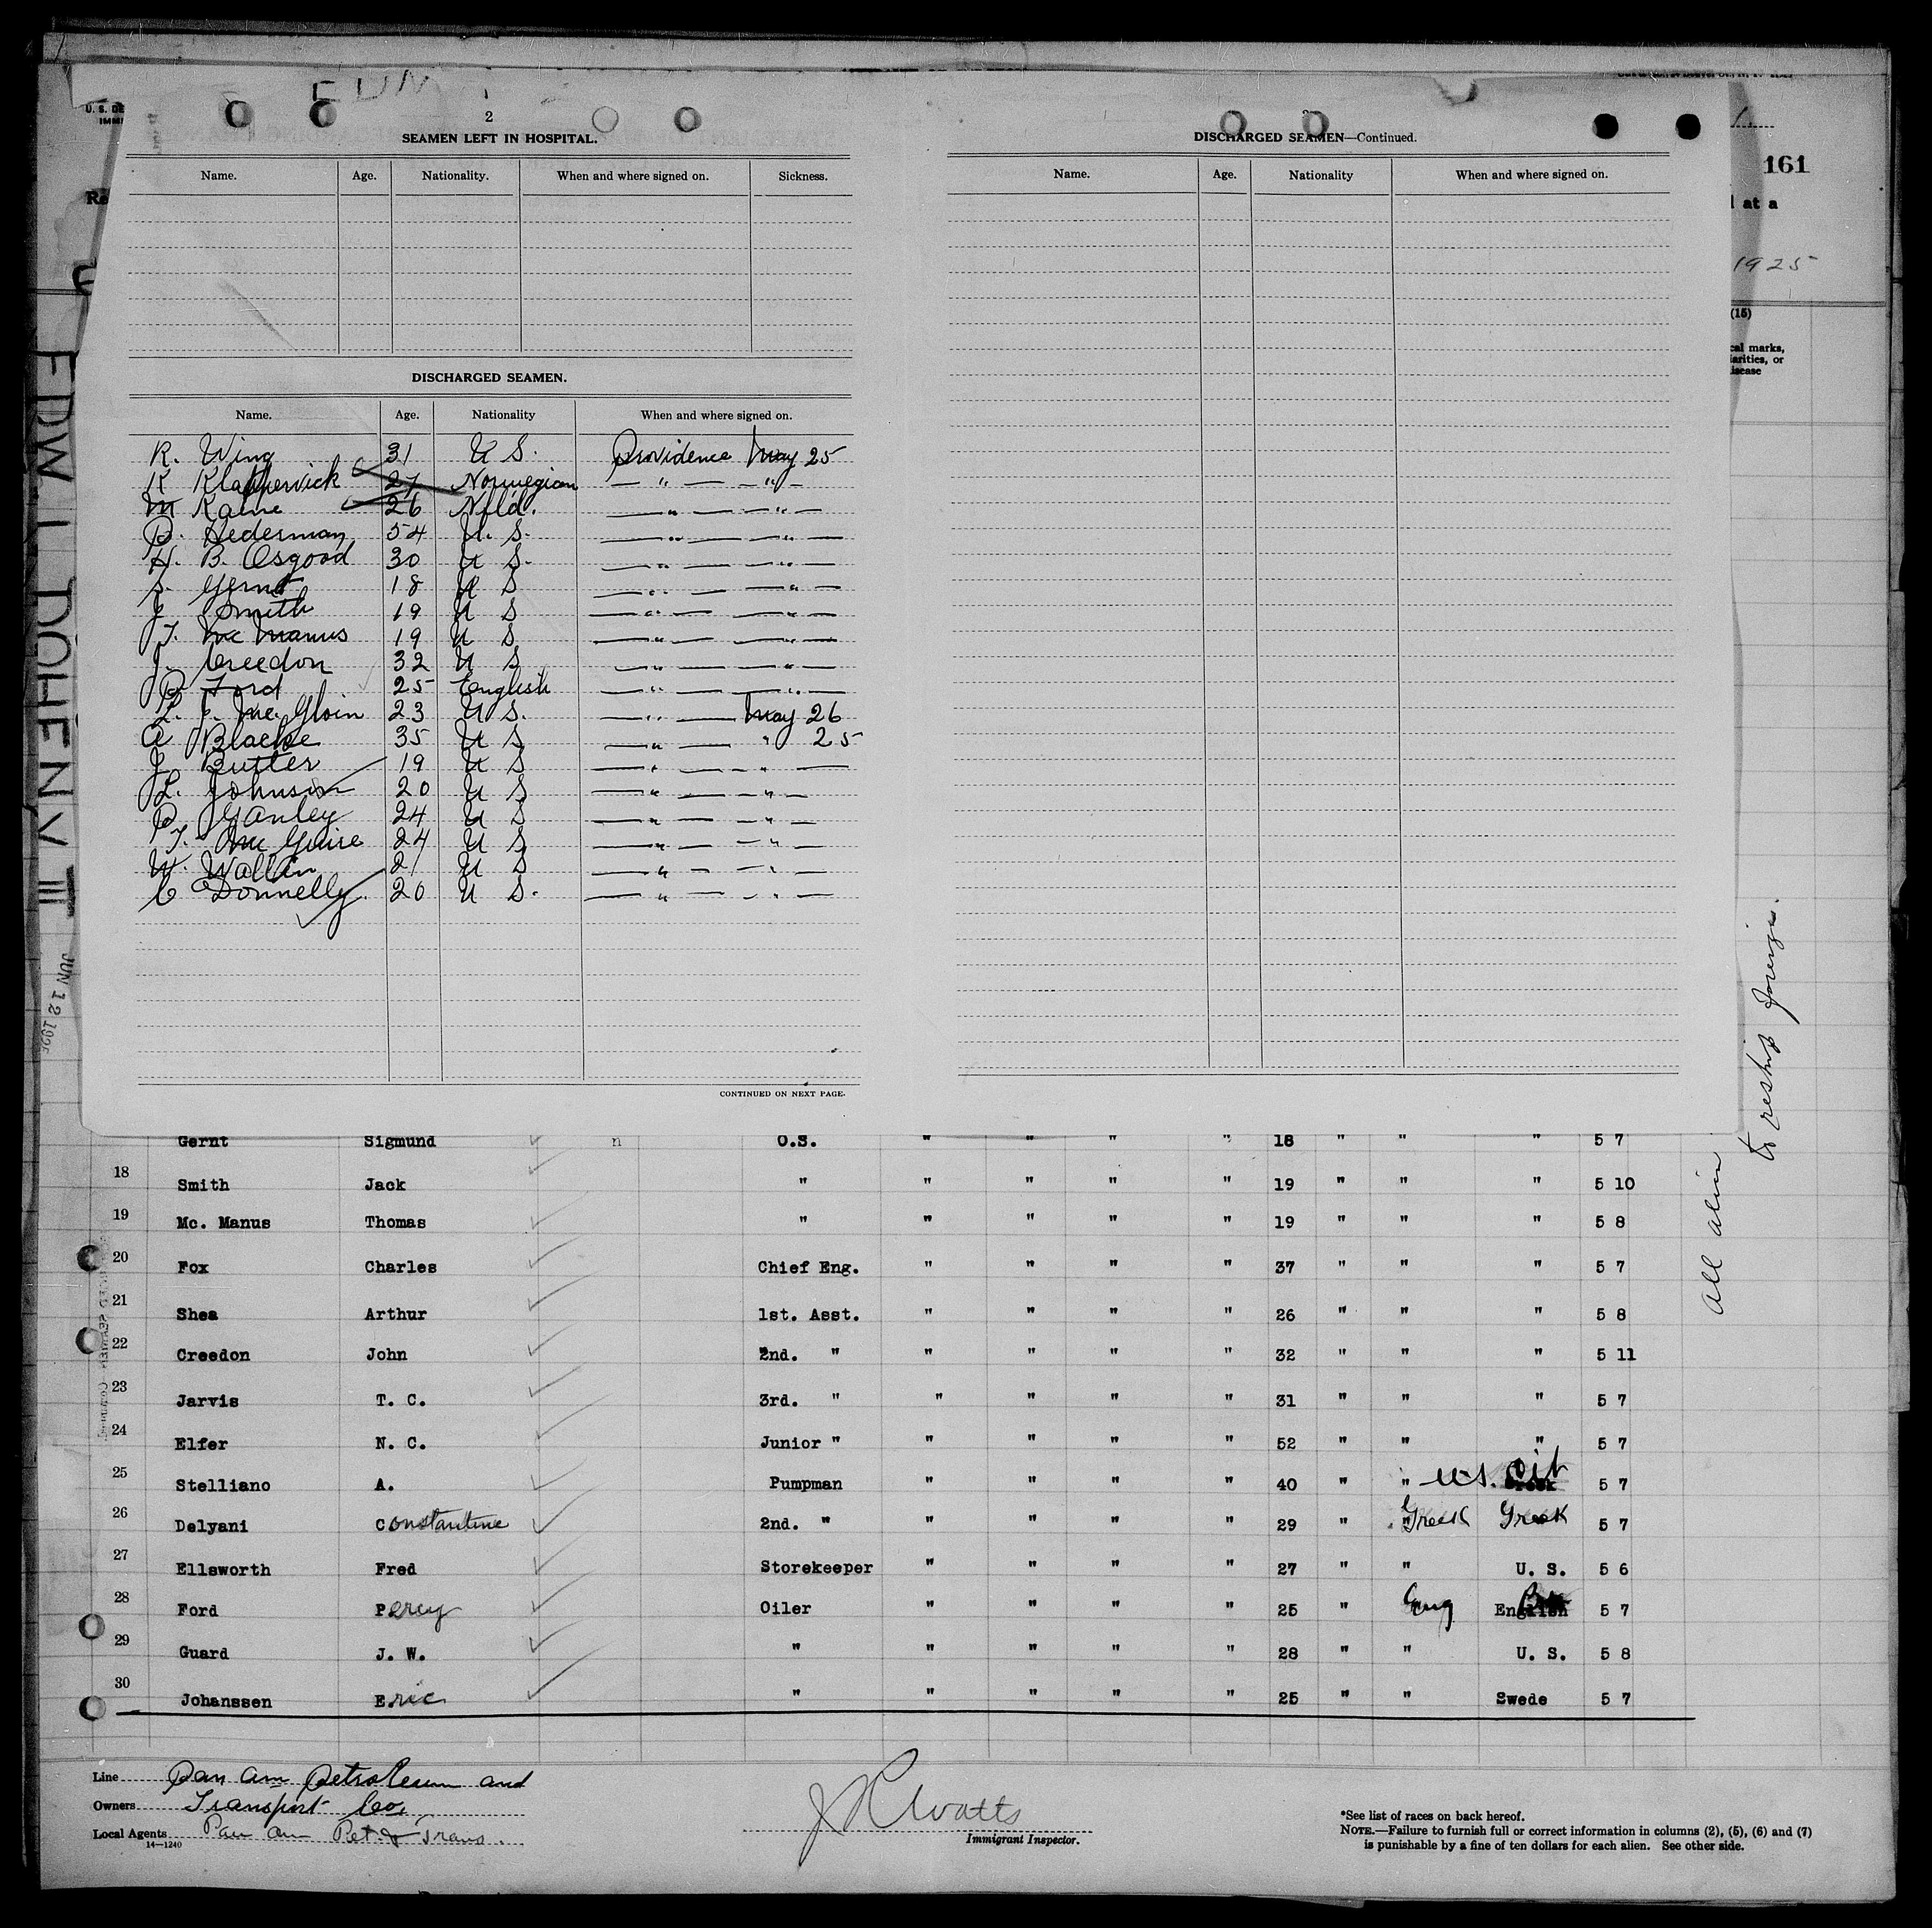 U. S. DE
IMMI
2
SEAMEN LEFT IN HOSPITAL.
Name. Age. Nationality. When and where signed on. Sickness.
DISCHARGED SEAMEN.
Name. Age. Nationality When and where signed on.
R. Wing 31 U S. Providence May 25
K 27 Norwegian — " — — " —
M Kane 26 Nfld. — " — — " —
D. Hederman 54 U. S. — " — — " —
H. B. Osgood 30 U S. — " — — " —
S. Gernt 18 U S — " — — " —
J Smith 19 U S — " — — " —
T. Mc Manus 19 U S — " — — " —
J. Creedon 32 U S — " — — " —
P Ford 25 English — " — — " —
L. J. Mc. Gloin 23 U S. — " — May 26
A Blacke 35 U S — " — " 25
J Butler 19 U S — " — — " —
L. Johnson 20 U S — " — — " —
D Ganley 24 U S — " — — " —
T. Mc Guire 24 U S — " — — " —
W. Wallin 21 U S — " — — " —
C Donnelly. 20 U S. — " — — " —
CONTINUED ON NEXT PAGE.
DISCHARGED SEAMEN—Continued.
Name. Age. Nationality When and where signed on.
161
l at a
1925
(15)
cal marks,
iarities, or
isease
EDW. L. DOHENY III
JUN 12 1925
Gernt Sigmund n O.S. " " " " 18 " " " 5 7
18 Smith Jack " " " " " 19 " " " 5 10
19 Mc. Manus Thomas " " " " " 19 " " " 5 8
20 Fox Charles Chief Eng. " " " " 37 " " " 5 7
21 Shea Arthur 1st. Asst. " " " " 26 " " " 5 8
22 Creedon John 2nd. " " " " " 32 " " " 5 11
23 Jarvis T. C. 3rd. " " " " " 31 " " " 5 7
24 Elfer N. C. Junior " " " " " 52 " " " 5 7
25 Stelliano A. Pumpman " " " " 40 " " U.S. Cit 5 7
26 Delyani Constantine 2nd. " " " " " 29 " Greek Greek 5 7
27 Ellsworth Fred Storekeeper " " " " 27 " " U. S. 5 6
28 Ford Percy Oiler " " " " 25 " Eng English 5 7
29 Guard J. W. " " " " " 28 " " U. S. 5 8
30 Johanssen Eric " " " " " 25 " " Swede 5 7
All alien
to reship foreign.
Line Pan Am Petroleum and
Owners Transport Co.
Local Agents Pan Am Pet & Trans.
14—1240
Watts
Immigrant Inspector.
*See list of races on back hereof.
NOTE.—Failure to furnish full or correct information in columns (2), (5), (6) and (7)
is punishable by a fine of ten dollars for each alien. See other side.